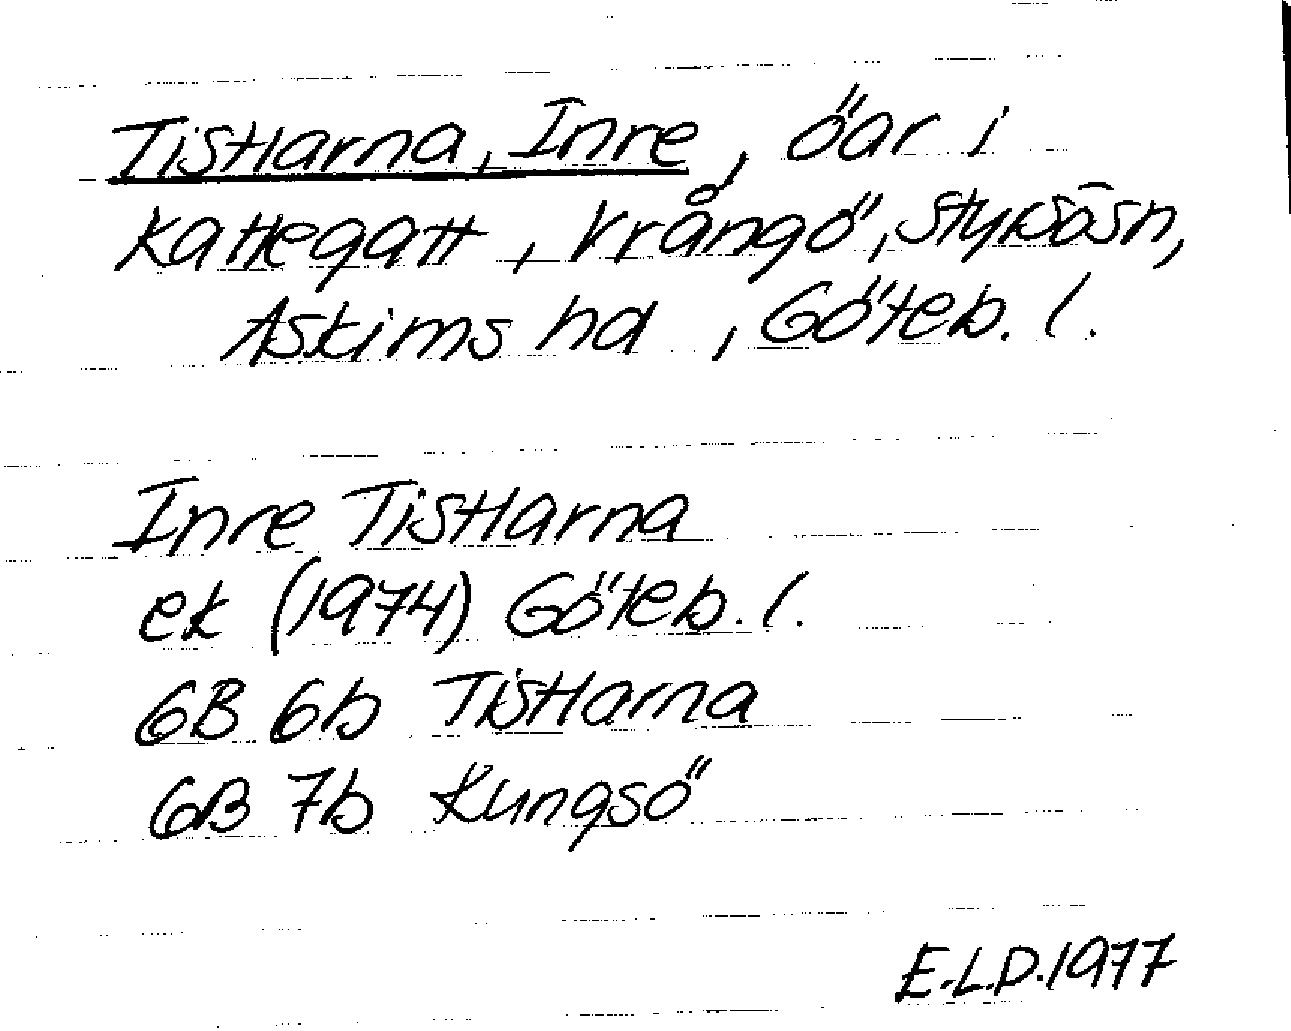 Tistlarna, Inre, öar i
Kattegatt, Vrångö, Styrsösn,
Askims hd, Göteb. l.
Inre Tistlarna
ek (1974) Göteb. l.
6B 6b Tistlarna
6B 7b Kungsö
E.L.D.1977